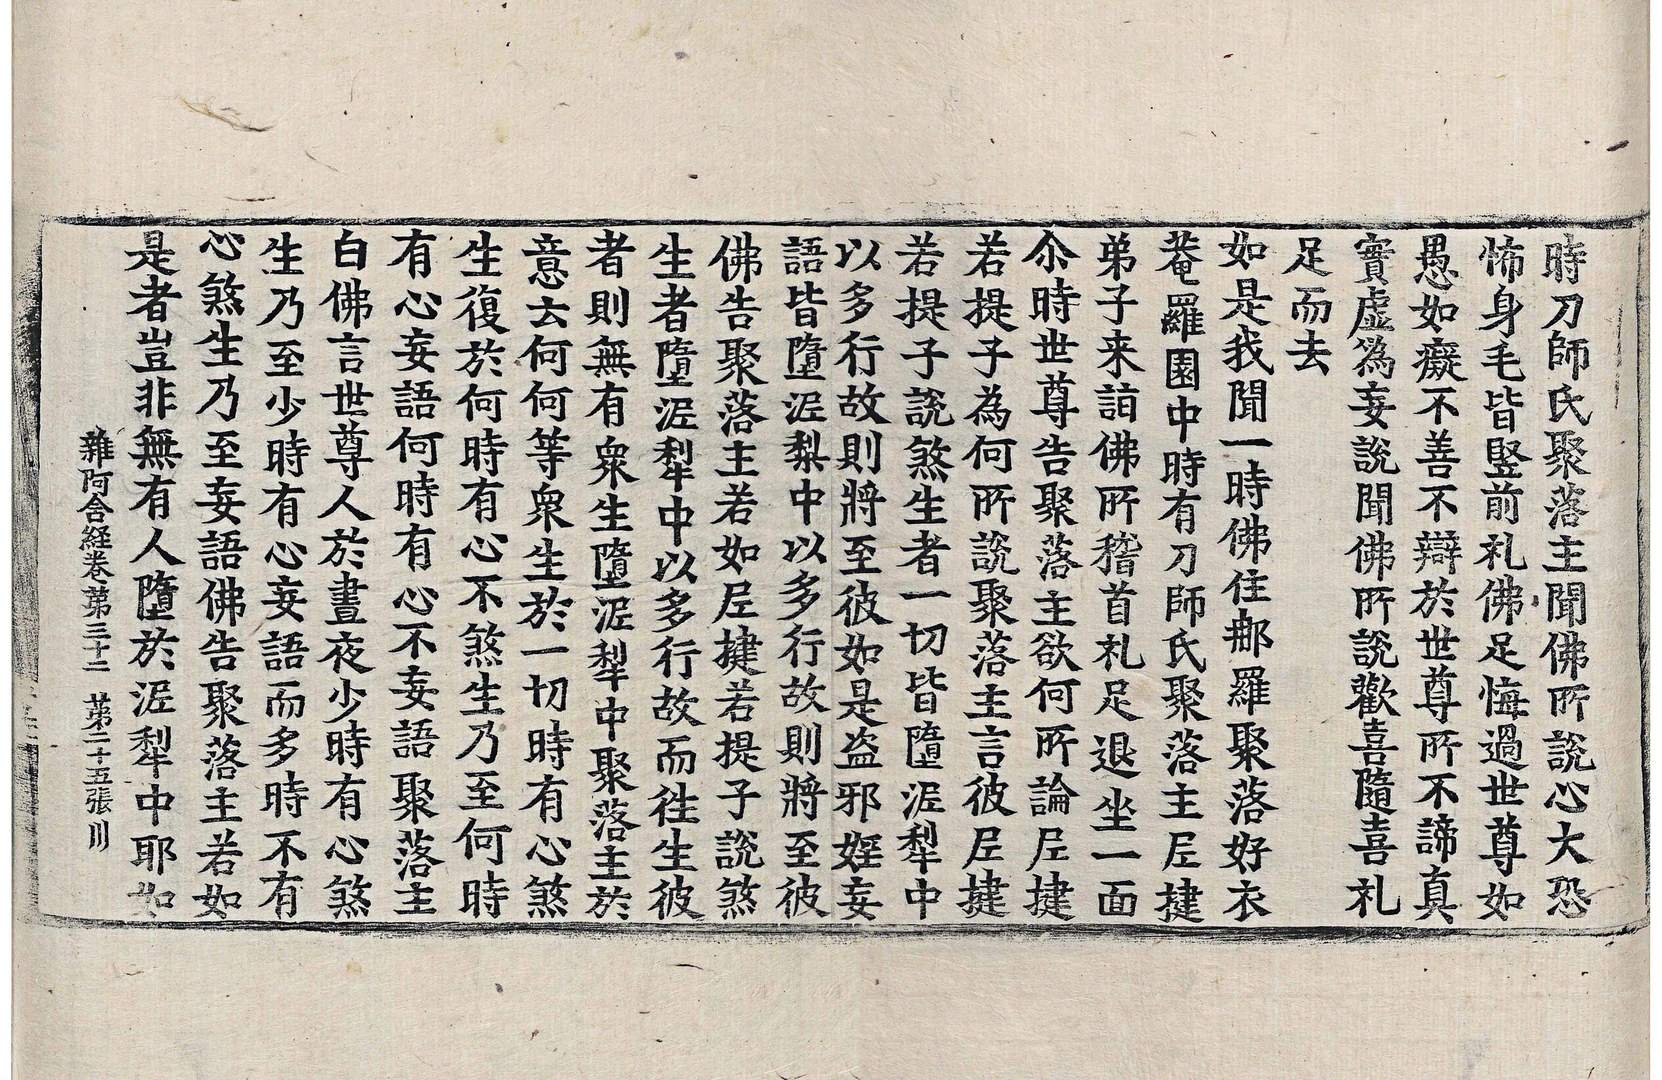 時刀師氏聚落主聞佛所說心大恐
怖身毛皆竪前礼佛足悔過世尊如
愚如癡不善不辯於世尊所不諦真
實虛爲妄說聞佛所說歡喜隨喜礼
足而去
如是我聞一時佛住郍羅聚落好衣
菴羅園中時有刀師氏聚落主𡰱揵
弟子来詣佛所稽首礼足退坐一面
尒時世尊告聚落主欲何所論𡰱揵
若提子為何所說聚落主言彼𡰱揵
若提子說煞生者一切皆墮泥犁中
以多行故則將至彼如是盗邪婬妄
語皆墮泥梨中以多行故則將至彼
佛告聚落主若如𡰱揵若提子說煞
生者墮泥犁中以多行故而往生彼
者則無有衆生墮泥犁中聚落主於
意云何何等衆生於一切時有心煞
生復於何時有心不煞生乃至何時
有心妄語何時有心不妄語聚落主
白佛言世尊人於晝夜少時有心煞
生乃至少時有心妄語而多時不有
心煞生乃至妄語佛告聚落主若如
是者豈非無有人墮於泥犁中耶如
雜阿含経卷第三十二 第二十五張 川